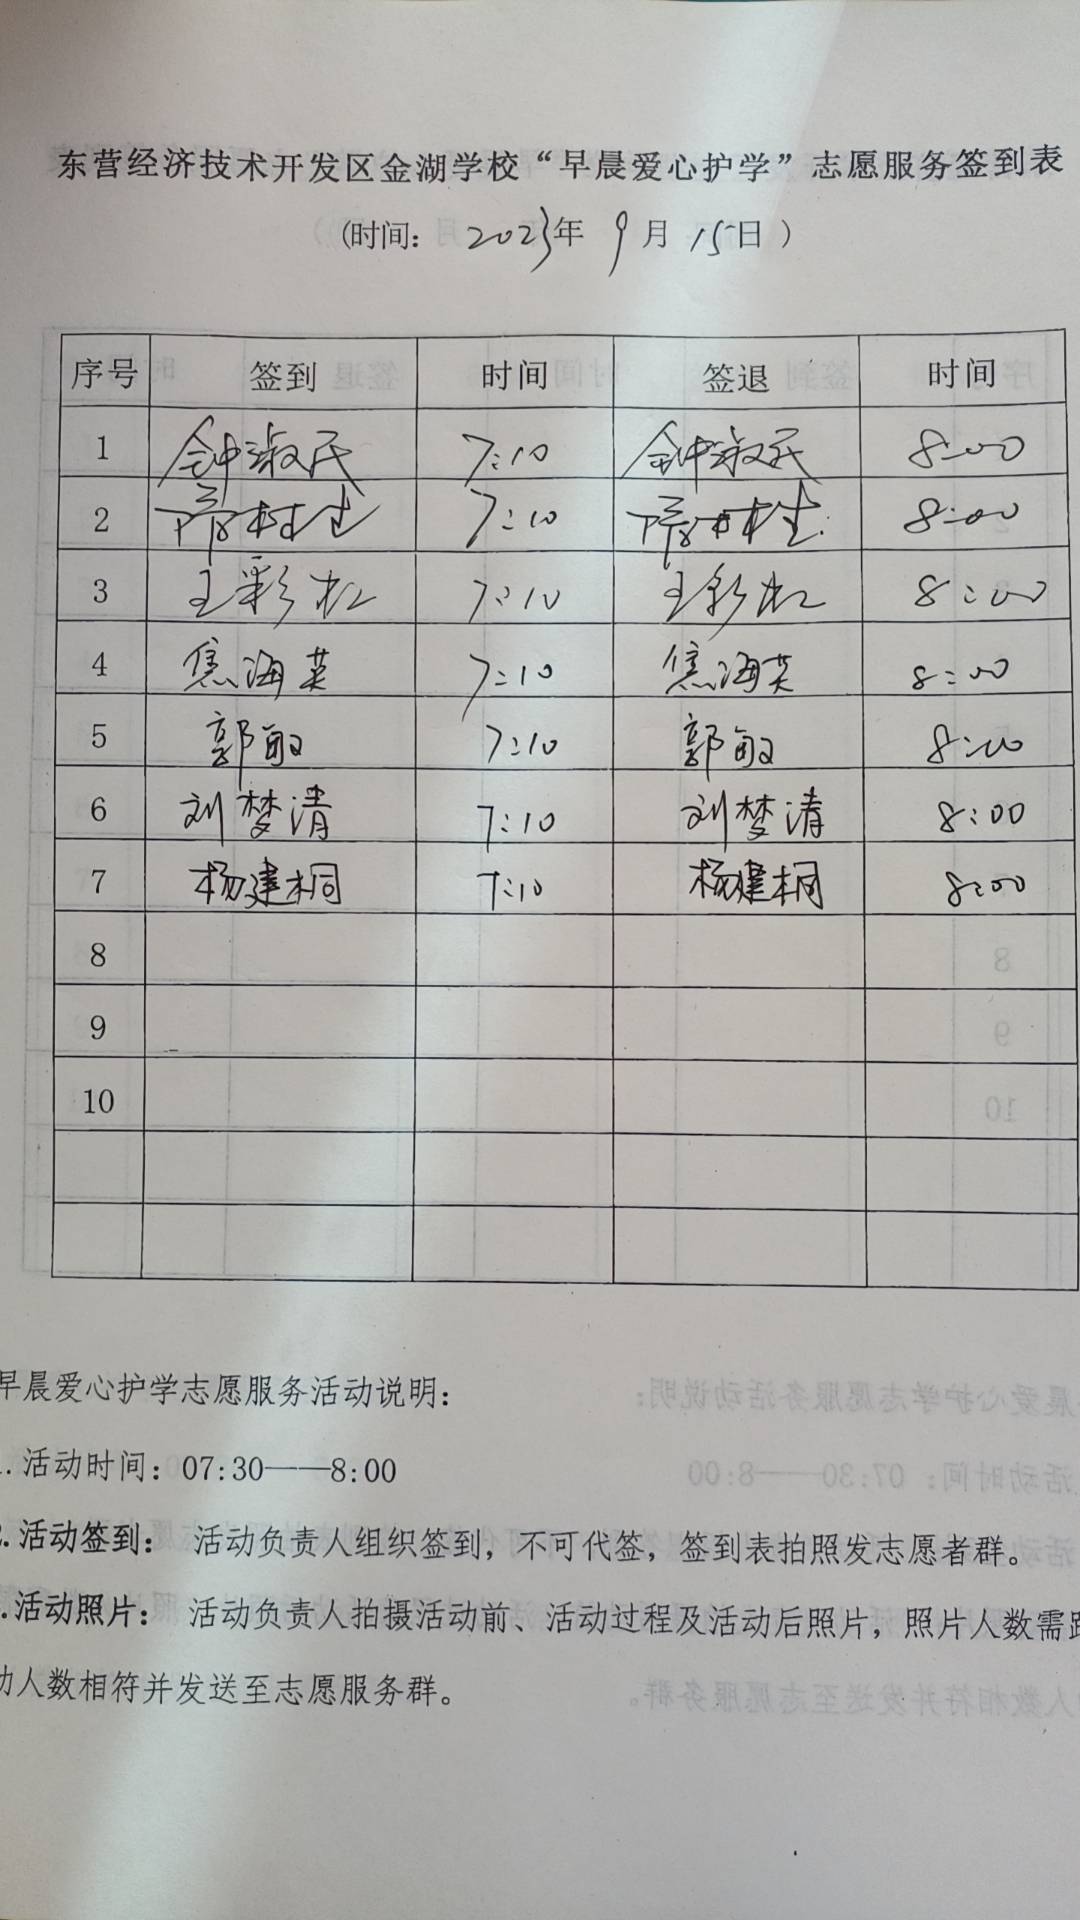 东营经济技术开发区金湖学校“早晨爱心护学”志愿服务签到表
(时间: 2023年 9月 15日)
序号 签到 时间 签退 时间
1 钟淑民 7:10 钟淑民 8:00
2 7:10 8:00
3 王彩虹 7:10 王彩虹 8:00
4 焦海英 7:10 焦海英 8:00
5 郭敏 7:10 郭敏 8:00
6 刘梦清 7:10 刘梦清 8:00
7 杨建桐 7:10 杨建桐 8:00
8
9
10
早晨爱心护学志愿服务活动说明:
1.活动时间: 07:30——8:00
2.活动签到: 活动负责人组织签到,不可代签,签到表拍照发志愿者群。
.活动照片: 活动负责人拍摄活动前、活动过程及活动后照片,照片人数需跟
动人数相符并发送至志愿服务群。